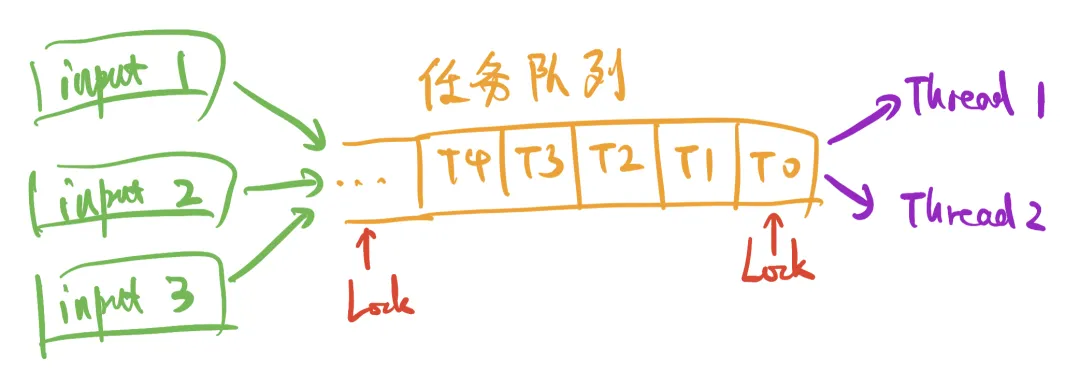 input 1
input 2
input 3
任务队列
... T4 T3 T2 T1 T0
Lock
Lock
Thread 1
Thread 2